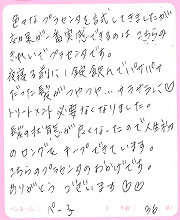 色々なプラセンタを試してきましたが
効果が一番実感できるのは こちらの
きれいでプラセンタです。
夜寝る前に1錠飲んでパサパサ
だった髪がつやつや…サラサラに♡
トリートメント必要なくなりました。
髪の状態が良くなったので人生初
のロングをキープできています。
こちらのプラセンタのおかげです。
ありがとうございます♡♡